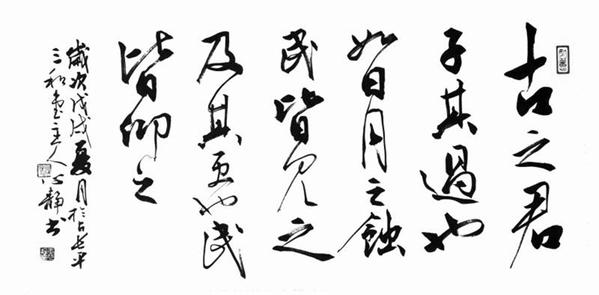 古之君
子其過也
如日月之蝕
民皆見之
及其更也民
皆仰之
歲次戊戌夏月於古長平
三和堂主人心靜書